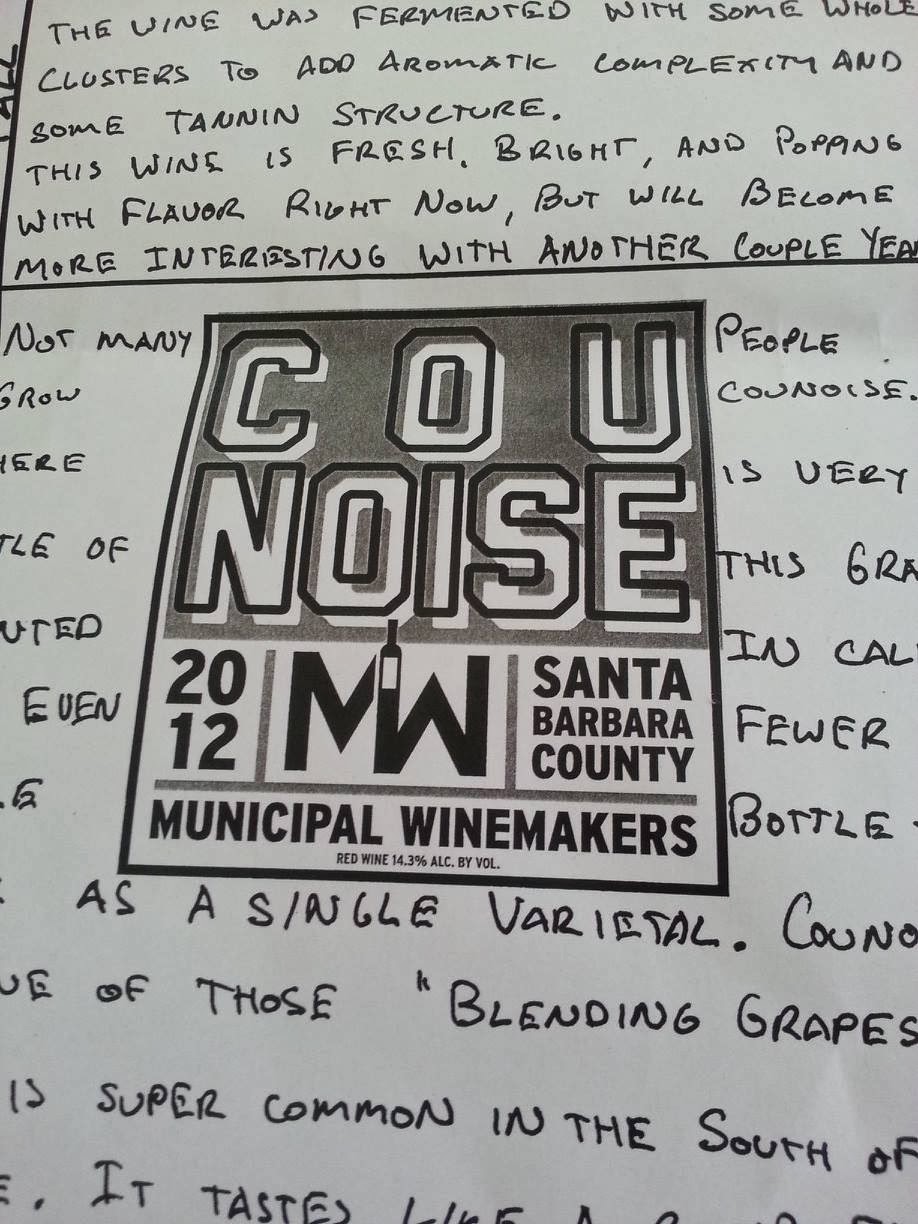 THE WINE WAS FERMENTED WITH SOME WHOLE
CLUSTERS TO ADD AROMATIC COMPLEXITY AND
SOME TANNIN STRUCTURE.
THIS WINE IS FRESH, BRIGHT, AND POPPING
WITH FLAVOR RIGHT NOW, BUT WILL BECOME
MORE INTERESTING WITH ANOTHER COUPLE YEA
NOT MANY PEOPLE
GROW COUNOISE.
HERE IS VERY
TLE OF THIS GRA
UTED IN CAL
EVEN FEWER
LE BOTTLE
COU
NOISE
20
12
MW
SANTA
BARBARA
COUNTY
MUNICIPAL WINEMAKERS
RED WINE 14.3% ALC. BY VOL.
AS A SINGLE VARIETAL. COUNO
OF THOSE "BLENDING GRAPES
IS SUPER COMMON IN THE SOUTH OF
E. IT TASTES LIKE A